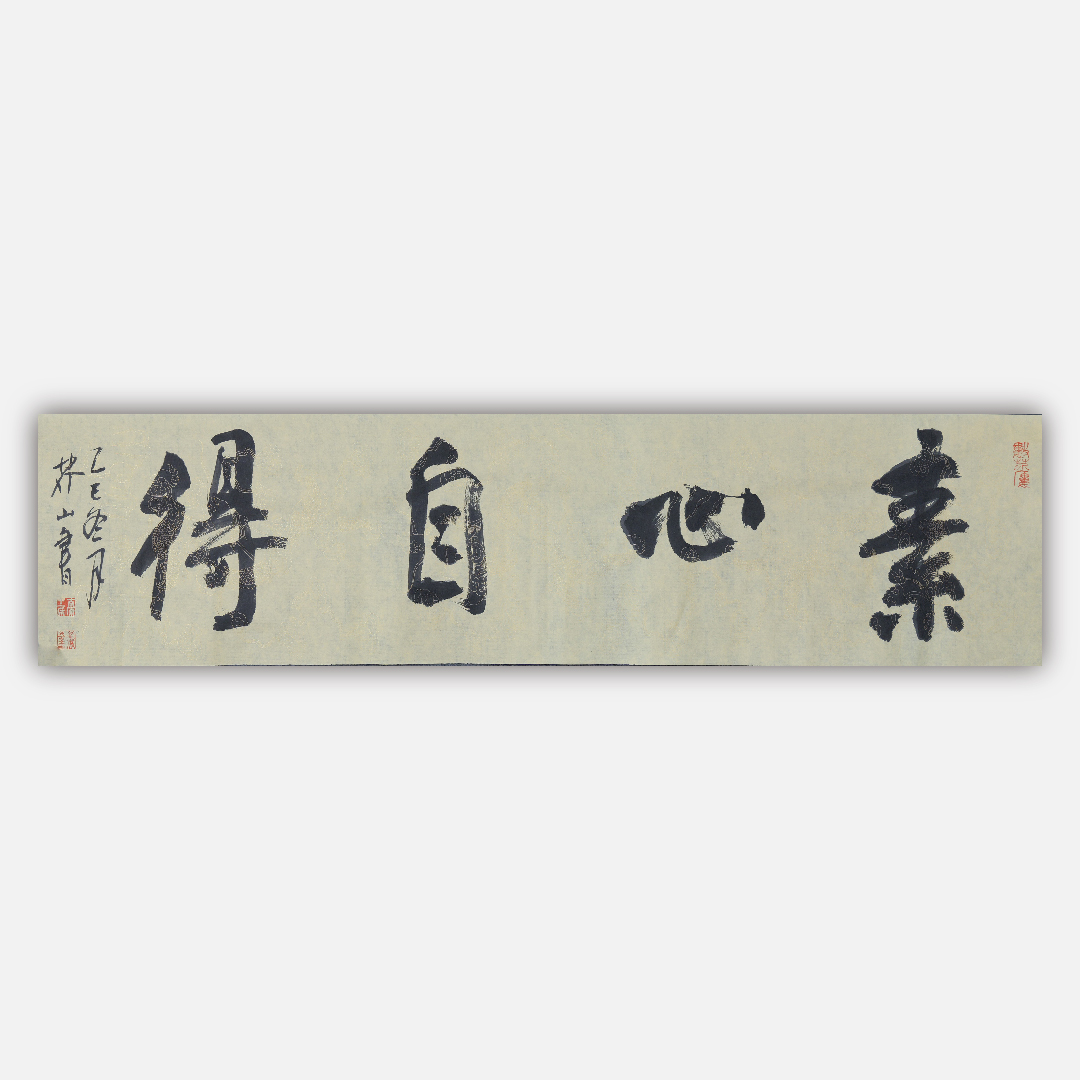 素心自得
乙巳冬月
林山書